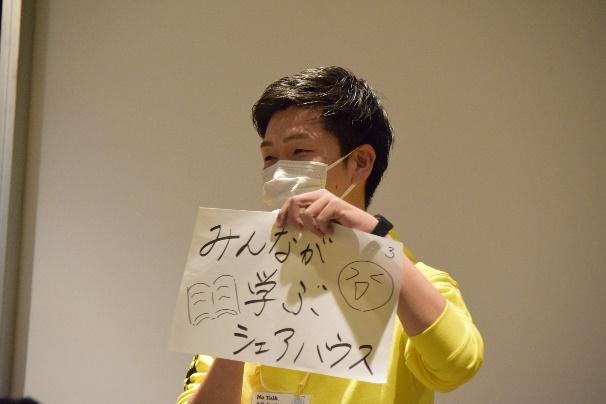 みんなが
3
学ぶ
シェアハウス
No Talk